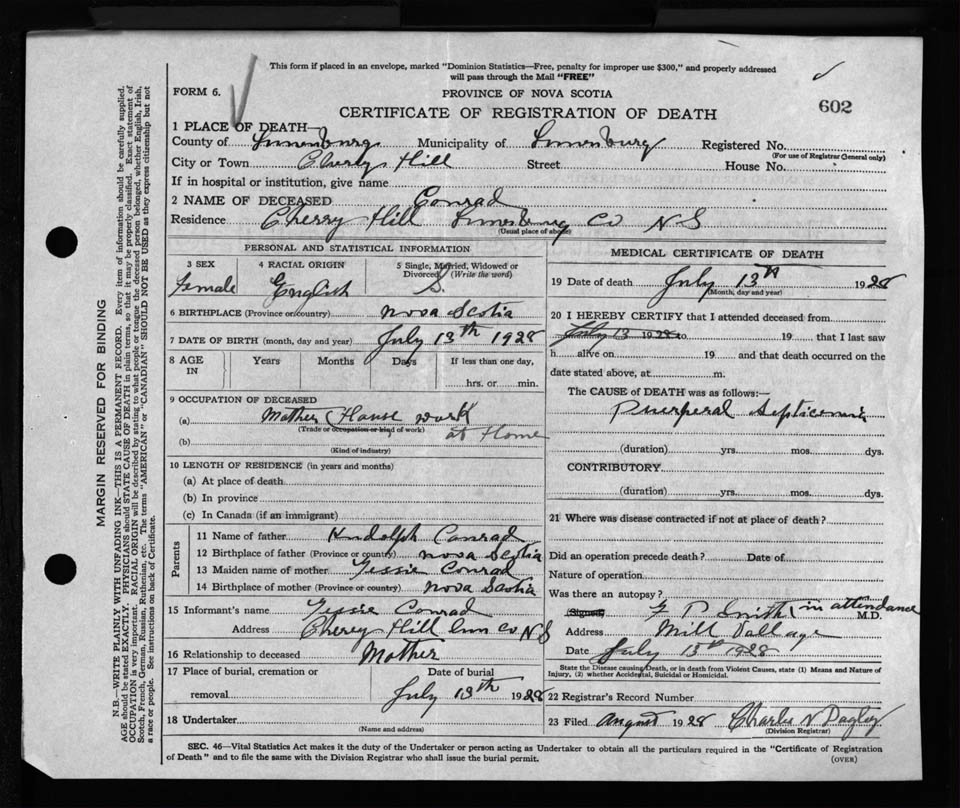 This form if placed in an envelope, marked "Dominion Statistics—Free, penalty for improper use $300," and properly addressed
will pass through the Mail "FREE"
FORM 6.
PROVINCE OF NOVA SCOTIA
602
CERTIFICATE OF REGISTRATION OF DEATH
1 PLACE OF DEATH—
County of Lunenburg Municipality of Lunenburg Registered No.
(For use of Registrar General only)
City or Town Cherly Hill Street House No.
If in hospital or institution, give name
2 NAME OF DECEASED Conrad
Residence Cherry Hill Lunenburg Co N S
(Usual place of abode)
PERSONAL AND STATISTICAL INFORMATION
3 SEX
Female
4 RACIAL ORIGIN
English
5 Single, Married, Widowed or
Divorced (Write the word)
S.
6 BIRTHPLACE (Province or country) Nova Scotia
7 DATE OF BIRTH (month, day and year) July 13th 1928
8 AGE IN Years Months Days If less than one day,
hrs. or min.
9 OCCUPATION OF DECEASED
(a) Mother House work
(Trade or occupation or kind of work) at Home
(b)
(Kind of industry)
10 LENGTH OF RESIDENCE (in years and months)
(a) At place of death
(b) In province
(c) In Canada (if an immigrant)
Parents
11 Name of father Rudolph Conrad
12 Birthplace of father (Province or country) Nova Scotia
13 Maiden name of mother Jessie Conrad
14 Birthplace of mother (Province or country) Nova Scotia
15 Informant's name Jessie Conrad
Address Cherey Hill Lun Co N S
16 Relationship to deceased Mother
17 Place of burial, cremation or
removal
Date of burial
July 13th 1928
18 Undertaker
(Name and address)
MEDICAL CERTIFICATE OF DEATH
19 Date of death July 13th 1928
(Month, day and year)
20 I HEREBY CERTIFY that I attended deceased from
July 13 1928 to 19 that I last saw
h alive on 19 and that death occurred on the
date stated above, at m.
The CAUSE OF DEATH was as follows:
Puerperal Septicemia
(duration) yrs. mos. dys.
CONTRIBUTORY
(duration) yrs. mos. dys.
21 Where was disease contracted if not at place of death?
Did an operation precede death? Date of
Nature of operation
Was there an autopsy?
(Signed) P Smith in attendance
M.D.
Address Mill Vallage
Date July 13th 1928
State the Disease causing Death, or in death from Violent Causes, state (1) Means and Nature of
Injury, (2) whether Accidental, Suicidal or Homicidal.
22 Registrar's Record Number
23 Filed August 1928 Charles N
(Division Registrar)
SEC. 46—Vital Statistics Act makes it the duty of the Undertaker or person acting as Undertaker to obtain all the particulars required in the "Certificate of Registration
of Death" and to file the same with the Division Registrar who shall issue the burial permit.
(OVER)
MARGIN RESERVED FOR BINDING
N.B.—WRITE PLAINLY WITH UNFADING INK—THIS IS A PERMANENT RECORD. Every item of information should be carefully supplied.
AGE should be stated EXACTLY. PHYSICIANS should STATE CAUSE OF DEATH in plain terms, so that it may be properly classified. Exact statement of
OCCUPATION is very important. RACIAL ORIGIN will be described by stating to what people or tongue the deceased person belonged, whether English, Irish,
Scotch, French, German, Russian, Ruthenian, etc. The terms "AMERICAN" or "CANADIAN" SHOULD NOT BE USED as they express citizenship but not
a race or people. See instructions on back of Certificate.